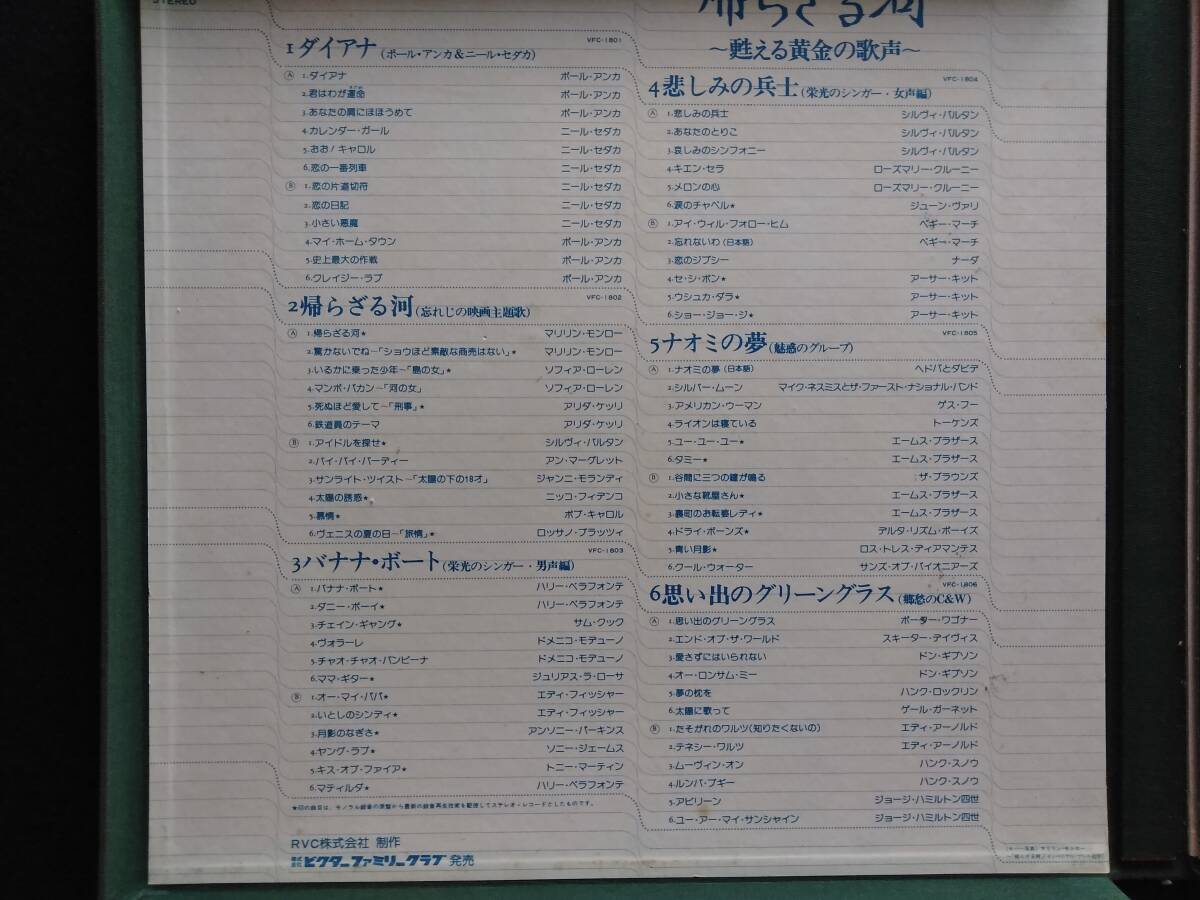 STEREO
帰らざる河
〜甦える黄金の歌声〜
1ダイアナ(ポール・アンカ&ニール・セダカ)
VFC-1801
Ⓐ 1.ダイアナ ポール・アンカ
2.君はわが運命 ポール・アンカ
3.あなたの肩にほほうめて ポール・アンカ
4.カレンダー・ガール ニール・セダカ
5.おお!キャロル ニール・セダカ
6.恋の一番列車 ニール・セダカ
Ⓑ 1.恋の片道切符 ニール・セダカ
2.恋の日記 ニール・セダカ
3.小さい悪魔 ニール・セダカ
4.マイ・ホーム・タウン ポール・アンカ
5.史上最大の作戦 ポール・アンカ
6.クレイジー・ラブ ポール・アンカ
2帰らざる河(忘れじの映画主題歌)
VFC-1802
Ⓐ 1.帰らざる河★ マリリン・モンロー
2.驚かないでね〜「ショウほど素敵な商売はない」★ マリリン・モンロー
3.いるかに乗った少年〜「島の女」★ ソフィア・ローレン
4.マンボ・バカン〜「河の女」 ソフィア・ローレン
5.死ぬほど愛して〜「刑事」★ アリダ・ケッリ
6.鉄道員のテーマ アリダ・ケッリ
Ⓑ 1.アイドルを探せ★ シルヴィ・バルタン
2.バイ・バイ・バーディー アン・マーグレット
3.サンライト・ツイスト〜「太陽の下の18才」 ジャンニ・モランディ
4.太陽の誘惑★ ニッコ・フィデンコ
5.慕情★ ボブ・キャロル
6.ヴェニスの夏の日〜「旅情」★ ロッサノ・ブラッツィ
3バナナ・ボート(栄光のシンガー・男声編)
VFC-1803
Ⓐ 1.バナナ・ボート★ ハリー・ベラフォンテ
2.ダニー・ボーイ★ ハリー・ベラフォンテ
3.チェイン・ギャング★ サム・クック
4.ヴォラーレ ドメニコ・モデューノ
5.チャオ・チャオ・バンビーナ ドメニコ・モデューノ
6.ママ・ギター★ ジュリアス・ラ・ローサ
Ⓑ 1.オー・マイ・パパ★ エディ・フィッシャー
2.いとしのシンディ★ エディ・フィッシャー
3.月影のなぎさ★ アンソニー・パーキンス
4.ヤング・ラブ★ ソニー・ジェームス
5.キス・オブ・ファイア★ トニー・マーティン
6.マティルダ★ ハリー・ベラフォンテ
★印の曲目は、モノラル録音の原盤から最新の録音再生技術を駆使してステレオ・レコードとしたものです。
RVC株式会社 制作
株式会社 ビクターファミリークラブ 発売
4悲しみの兵士(栄光のシンガー・女声編)
VFC-1804
Ⓐ 1.悲しみの兵士 シルヴィ・バルタン
2.あなたのとりこ シルヴィ・バルタン
3.哀しみのシンフォニー シルヴィ・バルタン
4.キエン・セラ ローズマリー・クルーニー
5.メロンの心 ローズマリー・クルーニー
6.涙のチャペル★ ジューン・ヴァリ
Ⓑ 1.アイ・ウィル・フォロー・ヒム ペギー・マーチ
2.忘れないわ(日本語) ペギー・マーチ
3.恋のジプシー ナーダ
4.セ・シ・ボン★ アーサー・キット
5.ウシュカ・ダラ★ アーサー・キット
6.ショー・ジョー・ジ★ アーサー・キット
5ナオミの夢(魅惑のグループ)
VFC-1805
Ⓐ 1.ナオミの夢(日本語) ヘドバとダビデ
2.シルバー・ムーン マイク・ネスミスとザ・ファースト・ナショナル・バンド
3.アメリカン・ウーマン ゲス・フー
4.ライオンは寝ている トーケンズ
5.ユー・ユー・ユー★ エームス・ブラザース
6.タミー★ エームス・ブラザース
Ⓑ 1.谷間に三つの鐘が鳴る ザ・ブラウンズ
2.小さな靴屋さん★ エームス・ブラザース
3.裏町のお転婆レディ★ エームス・ブラザース
4.ドライ・ボーンズ★ デルタ・リズム・ボーイズ
5.青い月影★ ロス・トレス・ディアマンテス
6.クール・ウォーター サンズ・オブ・パイオニアーズ
6思い出のグリーングラス(郷愁のC&W)
VFC-1806
Ⓐ 1.思い出のグリーングラス ポーター・ワゴナー
2.エンド・オブ・ザ・ワールド スキーター・デイヴィス
3.愛さずにはいられない ドン・ギブソン
4.オー・ロンサム・ミー ドン・ギブソン
5.夢の枕を ハンク・ロックリン
6.太陽に歌って ゲール・ガーネット
Ⓑ 1.たそがれのワルツ(知りたくないの) エディ・アーノルド
2.テネシー・ワルツ エディ・アーノルド
3.ムーヴィン・オン ハンク・スノウ
4.ルンバ・ブギー ハンク・スノウ
5.アビリーン ジョージ・ハミルトン四世
6.ユー・アー・マイ・サンシャイン ジョージ・ハミルトン四世